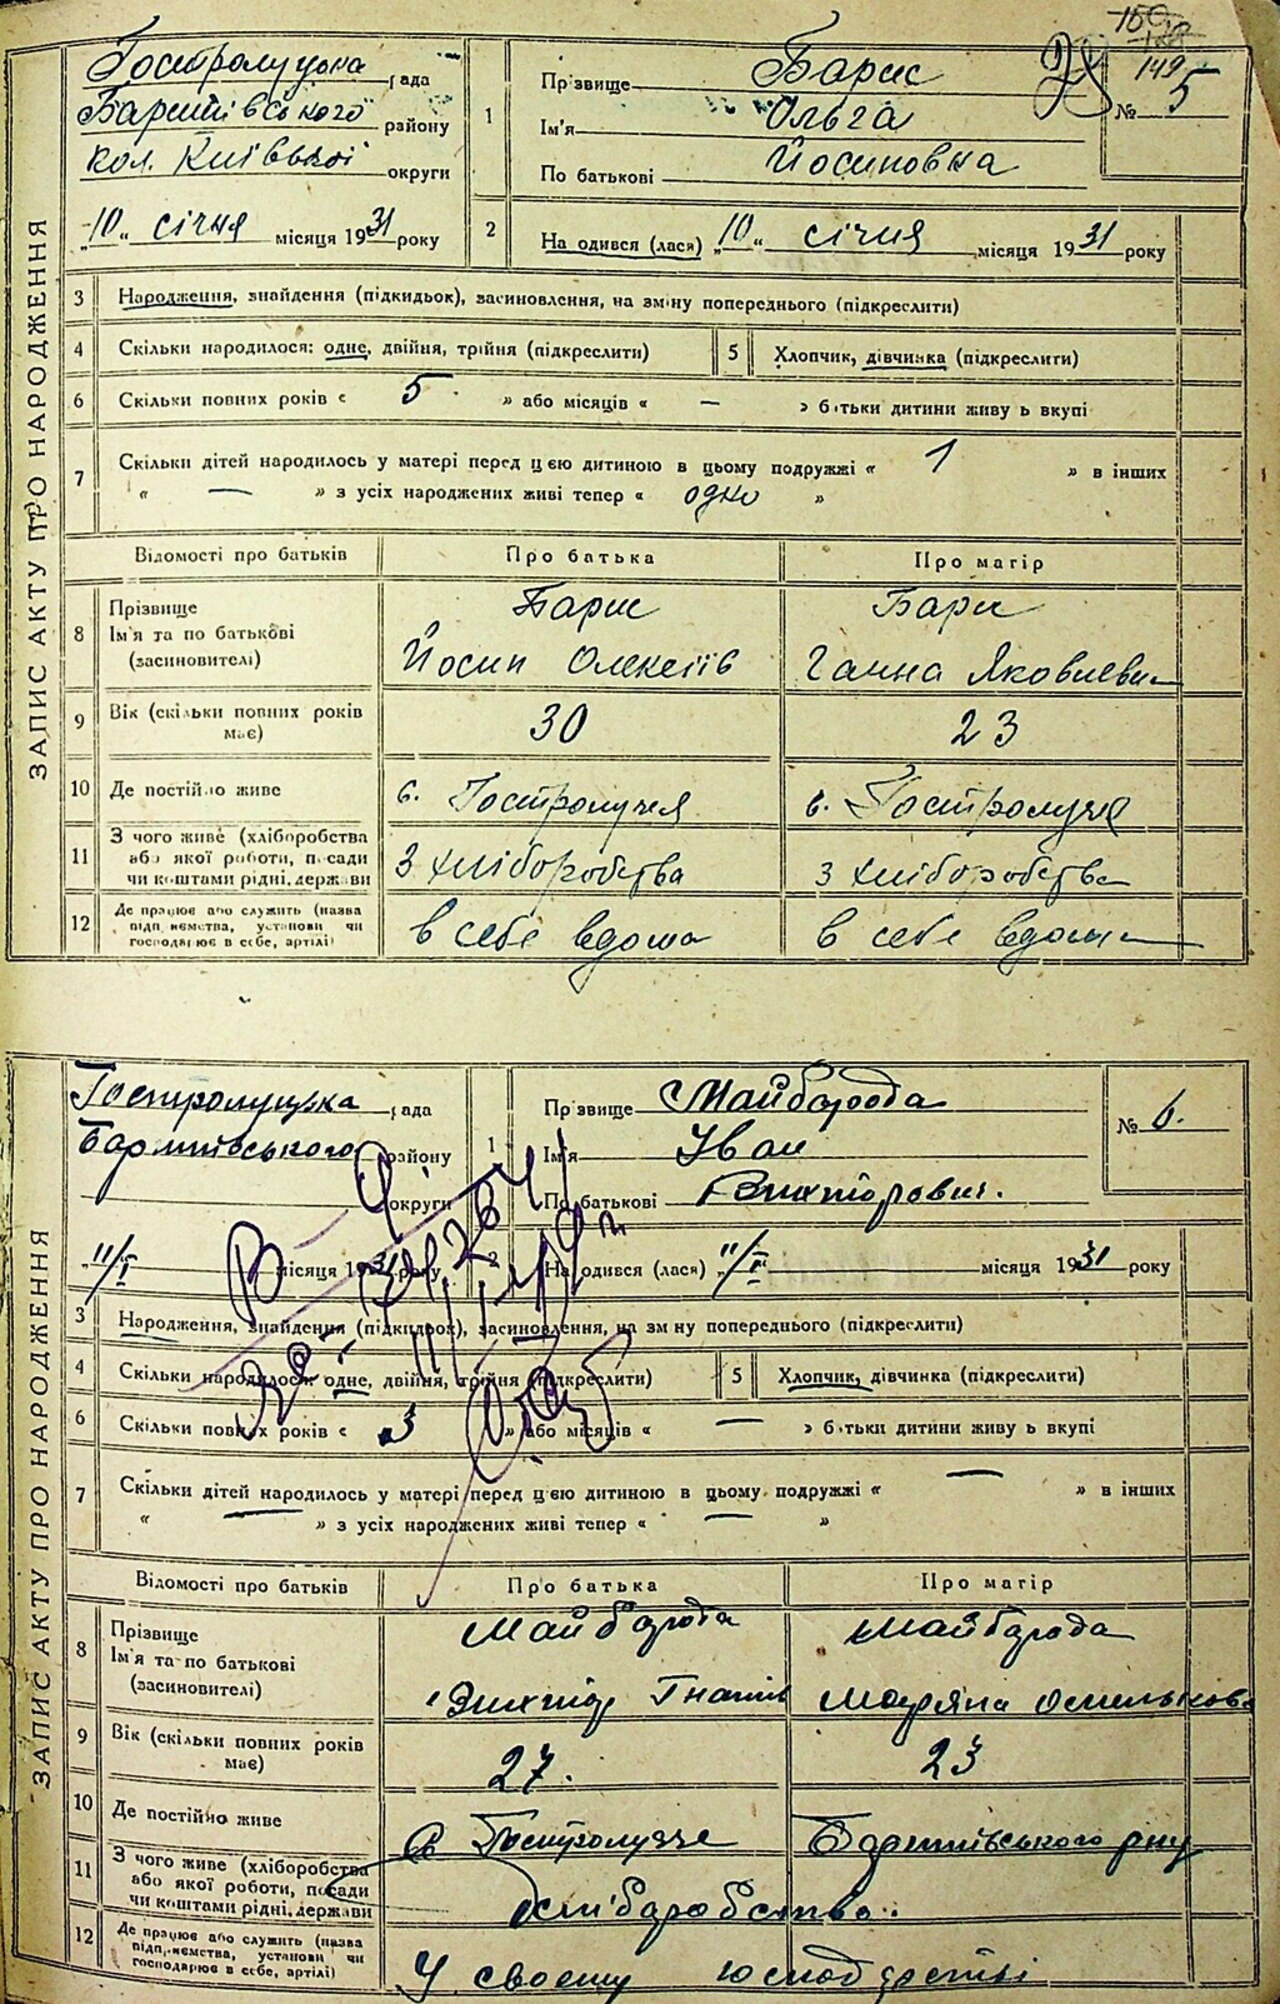 149
Гостролуцька рада
Баришівського району
кол. Київської округи
„10“ січня місяця 1931 року
1
Прізвище Барис
Ім'я Ольга
По батькові Йосиповна
№ 5
2
На одився (лася) „10“ січня місяця 1931 року
ЗАПИС АКТУ ПРО НАРОДЖЕННЯ
3 Народження, знайдення (підкидьок), засиновлення, на зміну попереднього (підкреслити)
4 Скільки народилося: одне, двійня, трійня (підкреслити) 5 Хлопчик, дівчинка (підкреслити)
6 Скільки повних років « 5 » або місяців « — » батьки дитини живуть вкупі
7 Скільки дітей народилось у матері перед цією дитиною в цьому подружжі « 1 » в інших
« — » з усіх народжених живі тепер « одно »
Відомості про батьків Про батька Про матір
8 Прізвище Ім'я та по батькові (засиновителі)
Барис Барис
Йосип Олексіїв Ганна Яковлевна
9 Вік (скільки повних років має) 30 23
10 Де постійно живе с. Гостролуччя с. Гостролуччя
11 З чого живе (хліборобства або якої роботи, посади чи коштами рідні, держави
З хліборобства З хліборобства
12 Де працює або служить (назва підприємства, установи чи господарює в себе, артілі)
в себе вдома в себе вдома
Гостролуцька рада
Баришівського району
округи
„11/I місяця 1931 року
1
Прізвище Майборода
Ім'я Іван
По батькові Вихторович.
№ 6.
2
На одився (лася) „11/I“ місяця 1931 року
ЗАПИС АКТУ ПРО НАРОДЖЕННЯ
3 Народження, знайдення (підкидьок), засиновлення, на зміну попереднього (підкреслити)
4 Скільки народилося: одне, двійня, трійня (підкреслити) 5 Хлопчик, дівчинка (підкреслити)
6 Скільки повних років « 3 » або місяців « — » батьки дитини живуть вкупі
7 Скільки дітей народилось у матері перед цією дитиною в цьому подружжі « — » в інших
« — » з усіх народжених живі тепер « — »
Відомості про батьків Про батька Про матір
8 Прізвище Ім'я та по батькові (засиновителі)
Майборода Майборода
Вихтір Гнатів Мар'яна Омелькова
9 Вік (скільки повних років має) 27. 23
10 Де постійно живе с. Гостролуччє Баришівського р-ну
11 З чого живе (хліборобства або якої роботи, посади чи коштами рідні, держави
хліборобство.
12 Де працює або служить (назва підприємства, установи чи господарює в себе, артілі)
У своєму господарстві